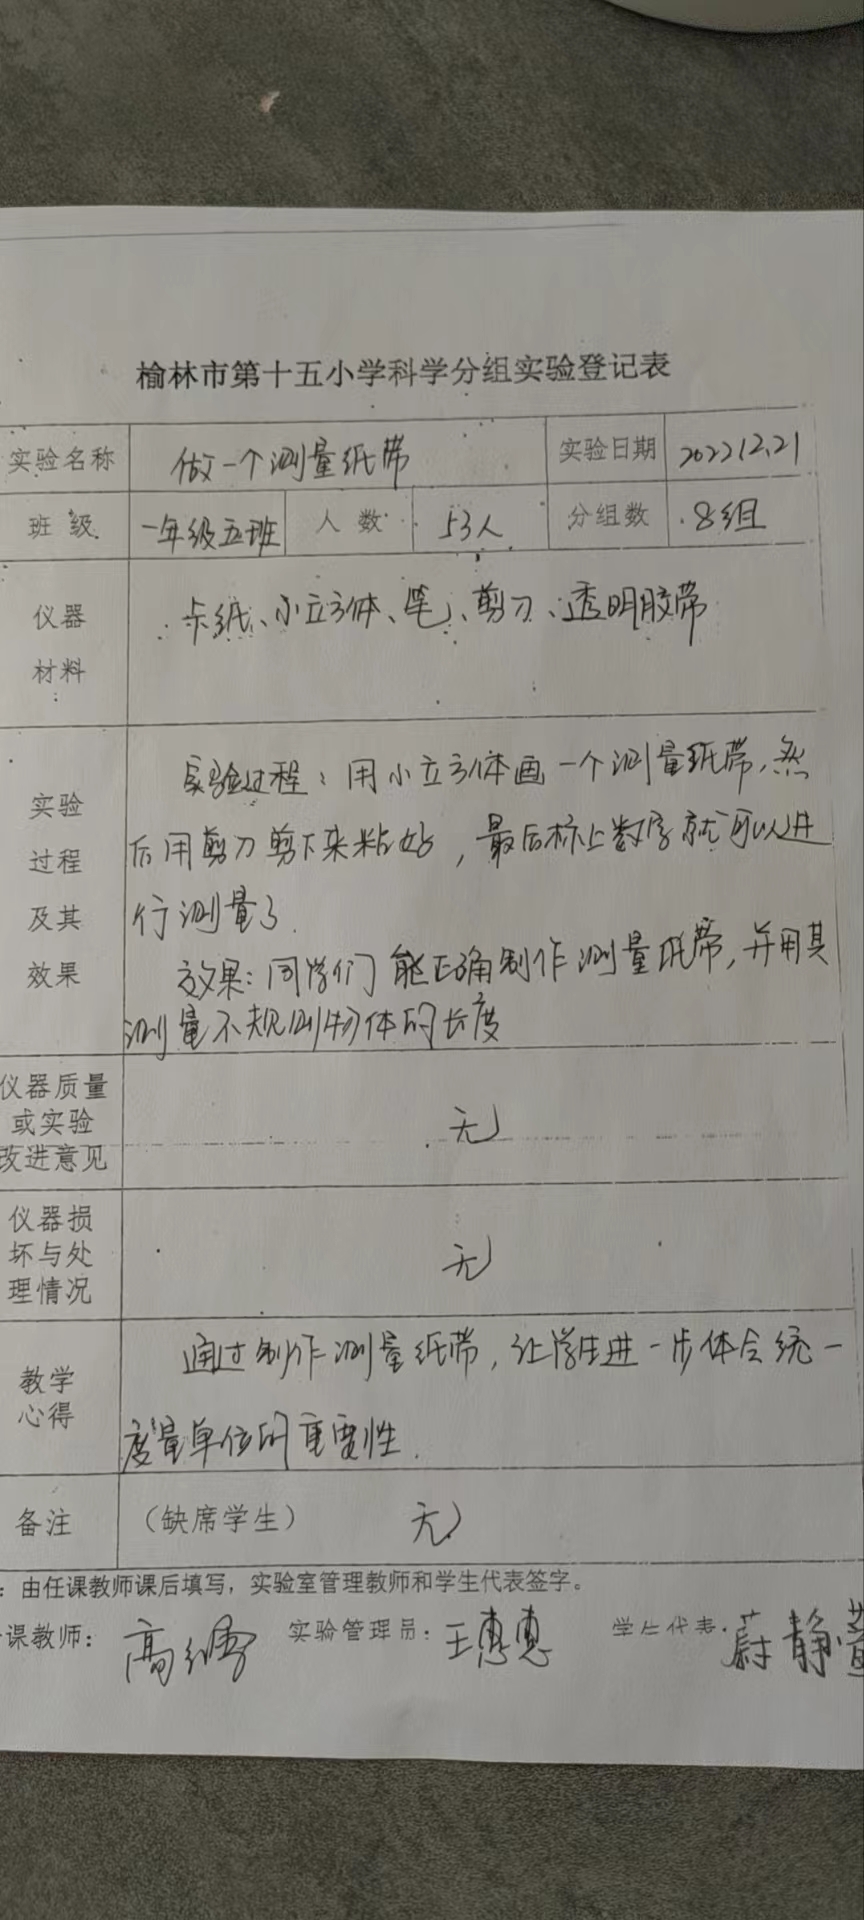 榆林市第十五小学科学分组实验登记表
实验名称 做一个测量纸带 实验日期 2022.12.21
班级 一年级五班 人数 53人 分组数 8组
仪器 卡纸、小立方体、笔、剪刀、透明胶带
材料
实验过程：用小立方体画一个测量纸带，然
实验
后用剪刀剪下来粘好，最后标上数字就可以进
过程
及其 行测量了.
效果 效果：同学们能正确制作测量纸带，并用其
测量不规则物体的长度
仪器质量
或实验 无
改进意见
仪器损
坏与处 无
理情况
通过制作测量纸带，让学生进一步体会统一
教学
心得
度量单位的重要性.
备注 （缺席学生） 无
：由任课教师课后填写，实验室管理教师和学生代表签字。
课教师： 高 实验管理员：王惠惠 学生代表：蔚静萱